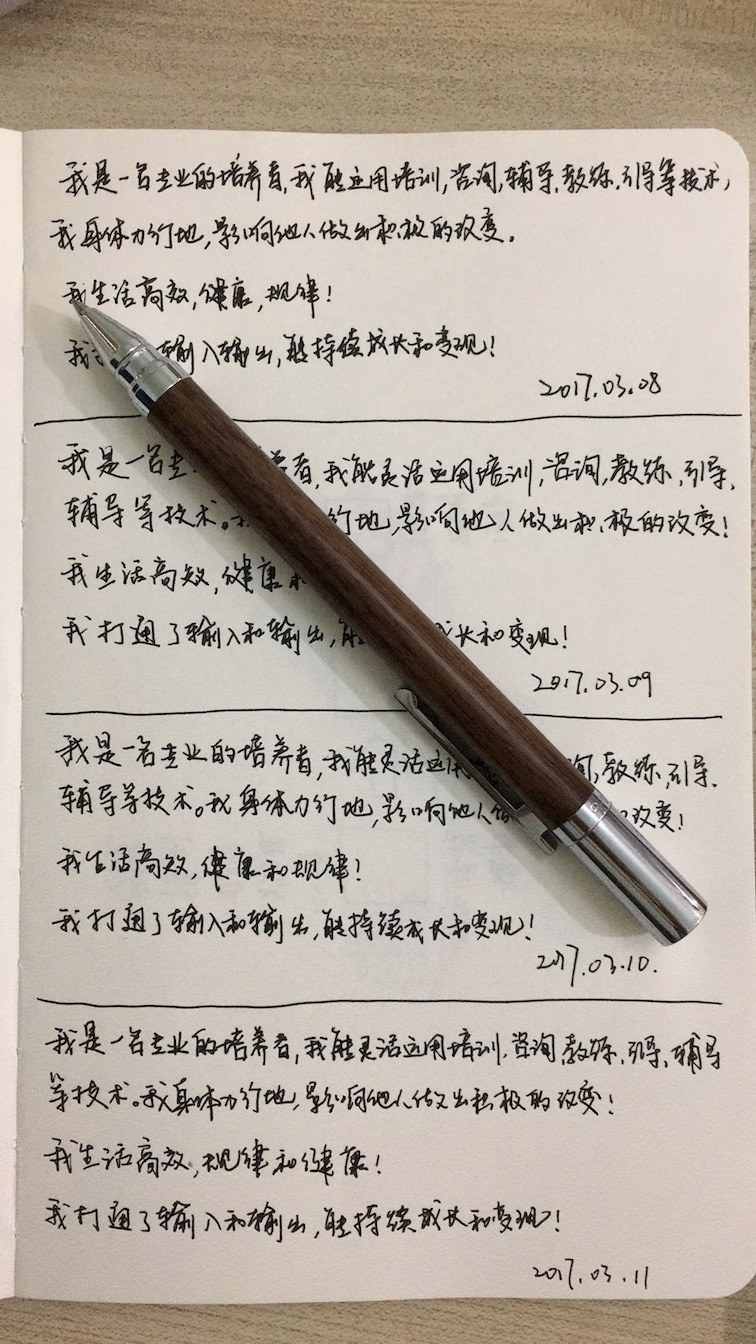 我是一名专业的培养者,我能运用培训,咨询,辅导,教练,引导等技术,
我身体力行地,影响他人做出积极的改变。
我生活高效,健康,规律!
我 输入输出,能持续成长和变现!
2017.03.08
我是一名专 养者,我能灵活运用培训,咨询,教练,引导,
辅导等技术。我 行地,影响他人做出积极的改变!
我生活高效,健康
我打通了输入和输出,能 成长和变现!
2017.03.09
我是一名专业的培养者,我能灵活运用 询,教练,引导、
辅导等技术。我身体力行地,影响他人做 改变!
我生活高效,健康和规律!
我打通了输入和输出,能持续成长和变现!
2017.03.10.
我是一名专业的培养者,我能灵活运用培训,咨询,教练,引导、辅导
等技术。我身体力行地,影响他人做出积极的改变!
我生活高效,规律和健康!
我打通了输入和输出,能持续成长和变现!
2017.03.11